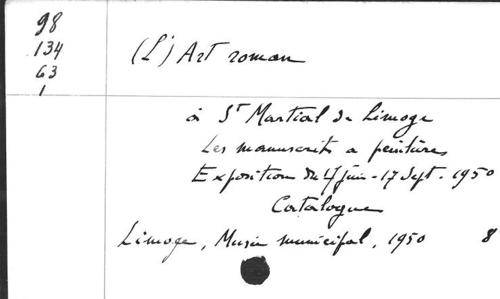 98
134
63
1
(L') Art roman
à St Martial de Limoge
Les manuscrits a peintures
Exposition du 4 juin - 17 sept. 1950
Catalogue
Limoge, Musée municipal, 1950 8